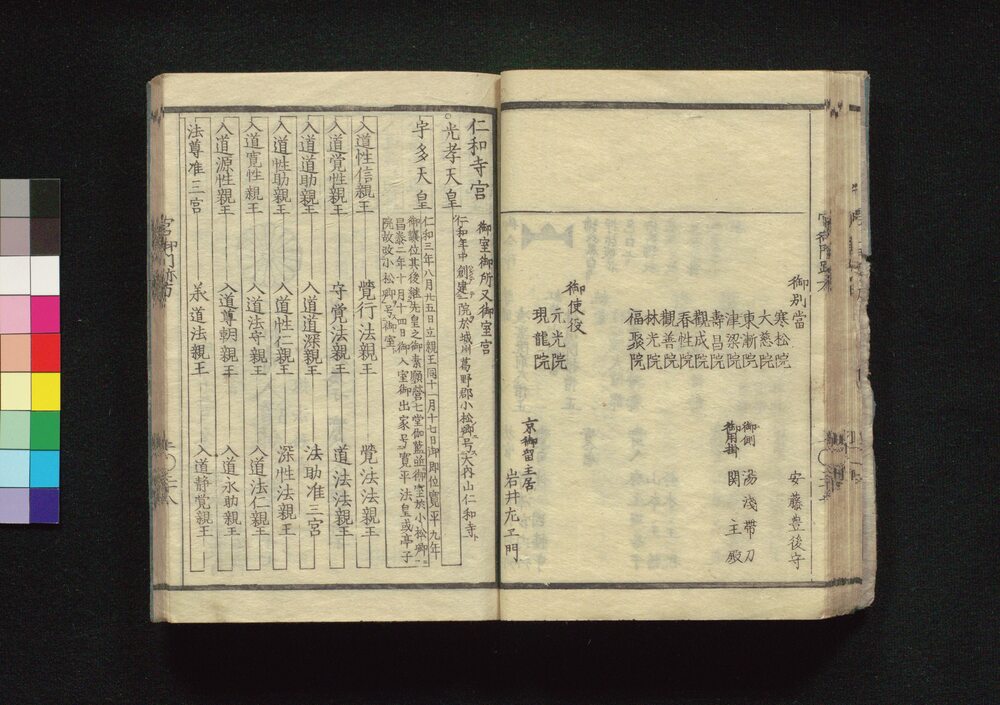 御別當
寒松院
大慈院
東漸院
津梁院
壽昌院
觀成院
春性院
觀善院
林光院
福聚院
御使役
元光院
現龍院
安藤豊後守
御側
御用掛
湯淺帯刀
関主殿
京御留主居
岩井尤ヱ門
仁和寺宮
御室御所又御室宮
光孝天皇
仁和年中創建一院於城州葛野郡小松郷号大内山仁和寺
宇多天皇
仁和三年八月廿五日立親王同十一月十七日御即位寛平九年
御讓位其後継先皇之御素願営七堂伽藍並御室於小松郷
昌泰二年十月十四日御入室御出家号寛平法皇或亭子
院故改小松郷号御室
入道性信親王
覺行法親王
覺法法親王
入道覚性親王
守覚法親王
道法法親王
入道道助親王
入道道深親王
法助准三宮
入道性助親王
入道性仁親王
深性法親王
入道寛性親王
入道法守親王
入道法仁親王
入道源性親王
入道尊朝親王
入道永助親王
法尊准三宮
承道法親王
入道静覚親王
宮御門跡方